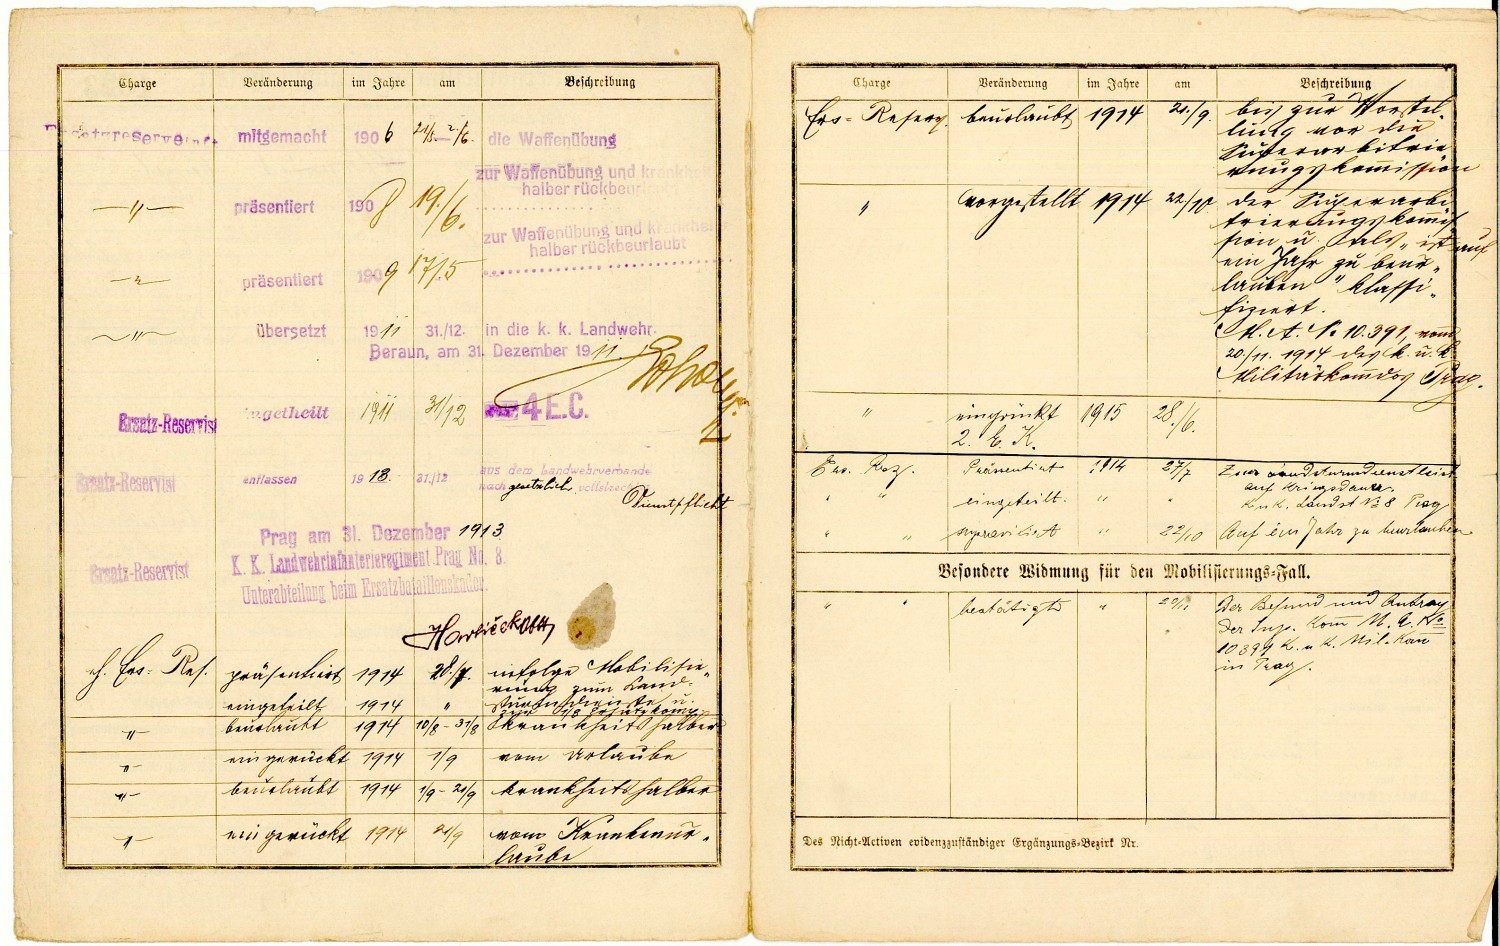 Charge Veränderung im Jahre am Beschreibung
mitgemacht 1906 die Waffenübung
zur Waffenübung und krankheits
halber rückbeurlaubt
—"— präsentiert 1908 19./6.
zur Waffenübung und krankheits
halber rückbeurlaubt
—"— präsentiert 1909 17/.5
—"— übersetzt 1911 31./12. in die k. k. Landwehr.
Beraun, am 31. Dezember 1911.
Ersatz-Reservist eingetheilt 1911 31/12 4 E.C.
Ersatz-Reservist entlassen 1913 31./12 aus dem Landwehrverbande
nach gesetzlich vollstreckter
Dienstpflicht
Prag am 31. Dezember 1913
Ersatz-Reservist K. K. Landwehrinfanterieregiment Prag No. 8.
Unterabteilung beim Ersatzbataillonskader.
Ers- Res. präsentiert 1914 28./7. infolge Mobilisie-
rung zum Land-
eingeteilt 1914 " sturmdienste u.
zur 1/8 Ersatzkomp.
—"— beurlaubt 1914 10/8 - 31/8 krankheitshalber
—"— eingerückt 1914 1/9 vom Urlaube
—"— beurlaubt 1914 1/9 - 21/9 krankheitshalber
—"— eingerückt 1914 21/9 vom Krankenur-
laube
Charge Veränderung im Jahre am Beschreibung
Ers- Reserv. beurlaubt 1914 21./9. bis zur Vorstel-
lung vor die
Superarbitrie
rungskommission
" vorgestellt 1914 22/10 der Superarbi
trierungskommis
sion u. als „ist auf
ein Jahr zu beur-
lauben" klassi-
fiziert.
M.A. No 10.391, vom
20./11. 1914 des k. u. k.
Militärkomdos Prag.
" eingerückt 1915 28./6.
2. E. K.
Ers. Res. Präsentirt 1914 27/7 Zur Landsturmdienstleist.
auf Kriegsdauer.
" " eingeteilt. " " k. k. Landst No 8 Prag
" " 22/10 Auf ein Jahr zu beurlauben
Besondere Widmung für den Mobilisierungs-Fall.
" " bestätigt " 20/11 Der Befund und Antrag
der Sup. Kom M. A. No
10391 k. u. k. Mil. Kom
in Prag.
Des Nicht-Activen evidenzzuständiger Ergänzungs-Bezirk Nr.